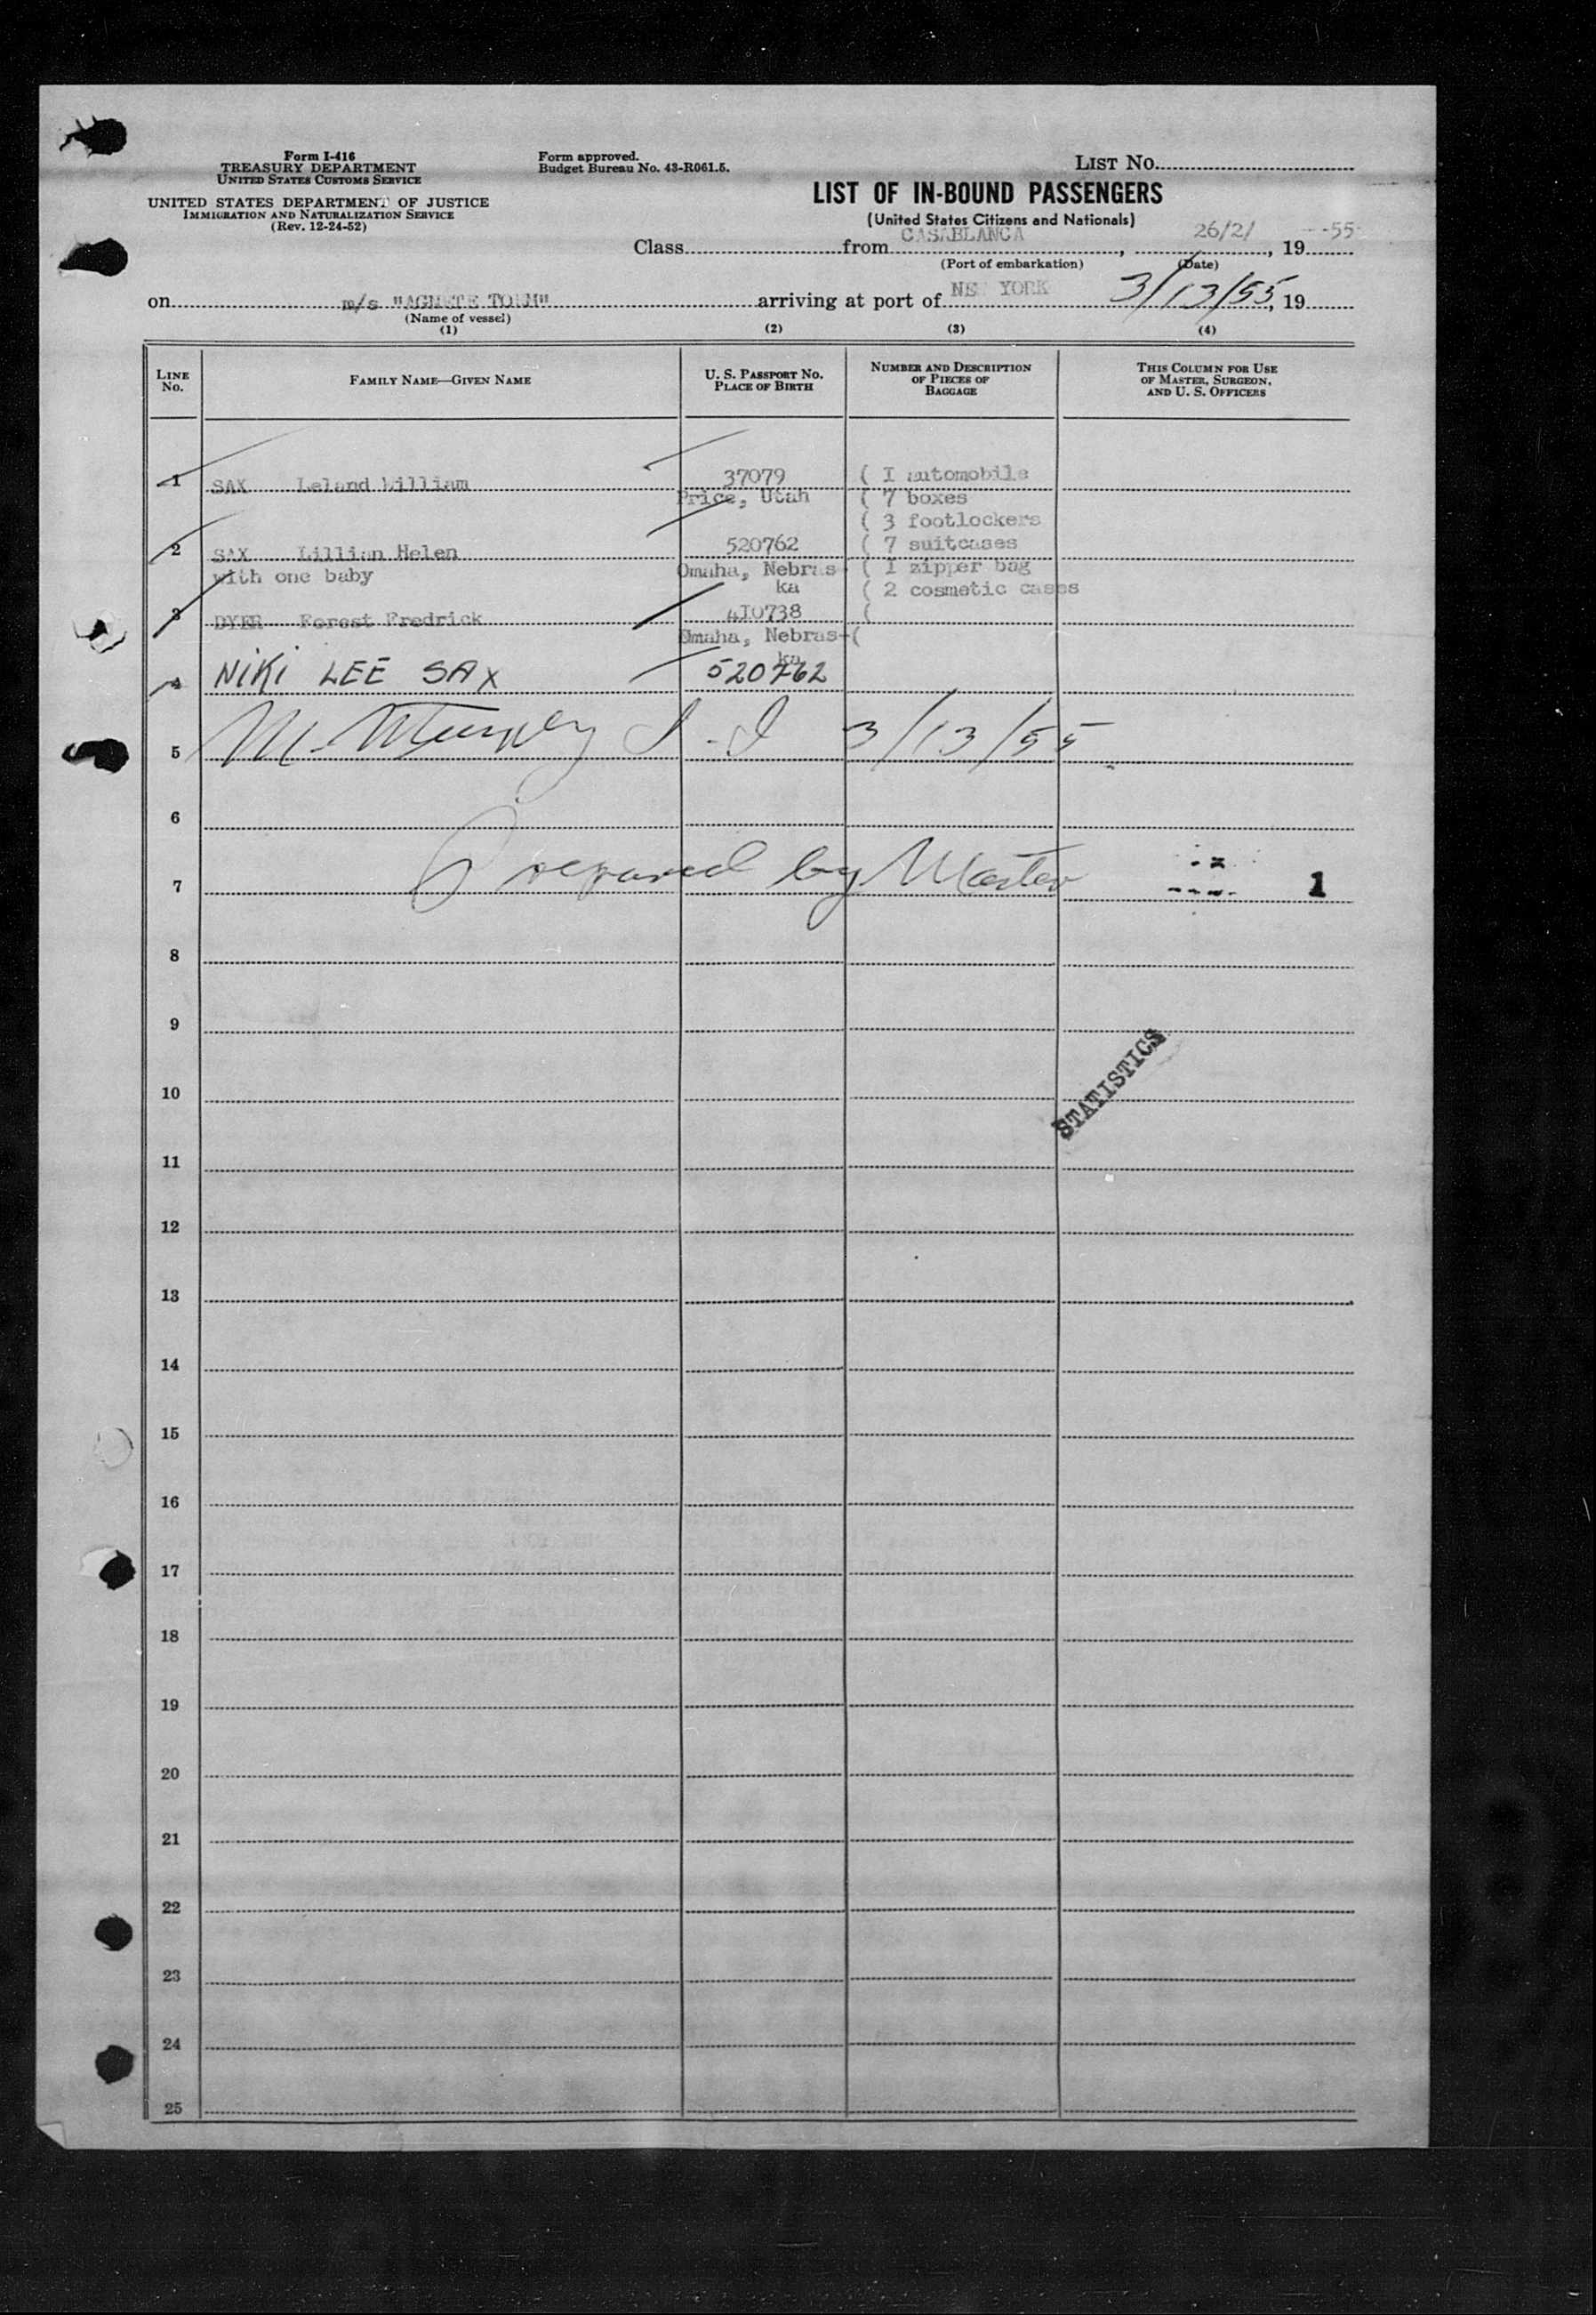 Form I-416
TREASURY DEPARTMENT
UNITED STATES CUSTOMS SERVICE
UNITED STATES DEPARTMENT OF JUSTICE
IMMIGRATION AND NATURALIZATION SERVICE
(Rev. 12-24-52)
Form approved.
Budget Bureau No. 43-R061.5.
LIST NO.
LIST OF IN-BOUND PASSENGERS
(United States Citizens and Nationals)
Class from CASABLANCA , 26/2/ , 19 -55
(Port of embarkation) (Date)
on m/s "AGNETE TORM" arriving at port of NEW YORK 3/13/55, 19
(Name of vessel)
(1) (2) (3) (4)
LINE No. FAMILY NAME—GIVEN NAME U. S. PASSPORT NO. PLACE OF BIRTH NUMBER AND DESCRIPTION OF PIECES OF BAGGAGE THIS COLUMN FOR USE OF MASTER, SURGEON, AND U. S. OFFICERS
1 SAX Leland William 37079 ( I automobile
Price, Utah ( 7 boxes
( 3 footlockers
2 SAX Lillian Helen 520762 ( 7 suitcases
with one baby Omaha, Nebras ( 1 zipper bag
ka ( 2 cosmetic cases
3 DYER Forest Fredrick 4I0738 (
Omaha, Nebras-(
ka
4 NIKI LEE SAX 520762
5 M. Murphy I-I 3/13/55
6
7 Prepared by Master 1
8
9
10 STATISTICS
11
12
13
14
15
16
17
18
19
20
21
22
23
24
25